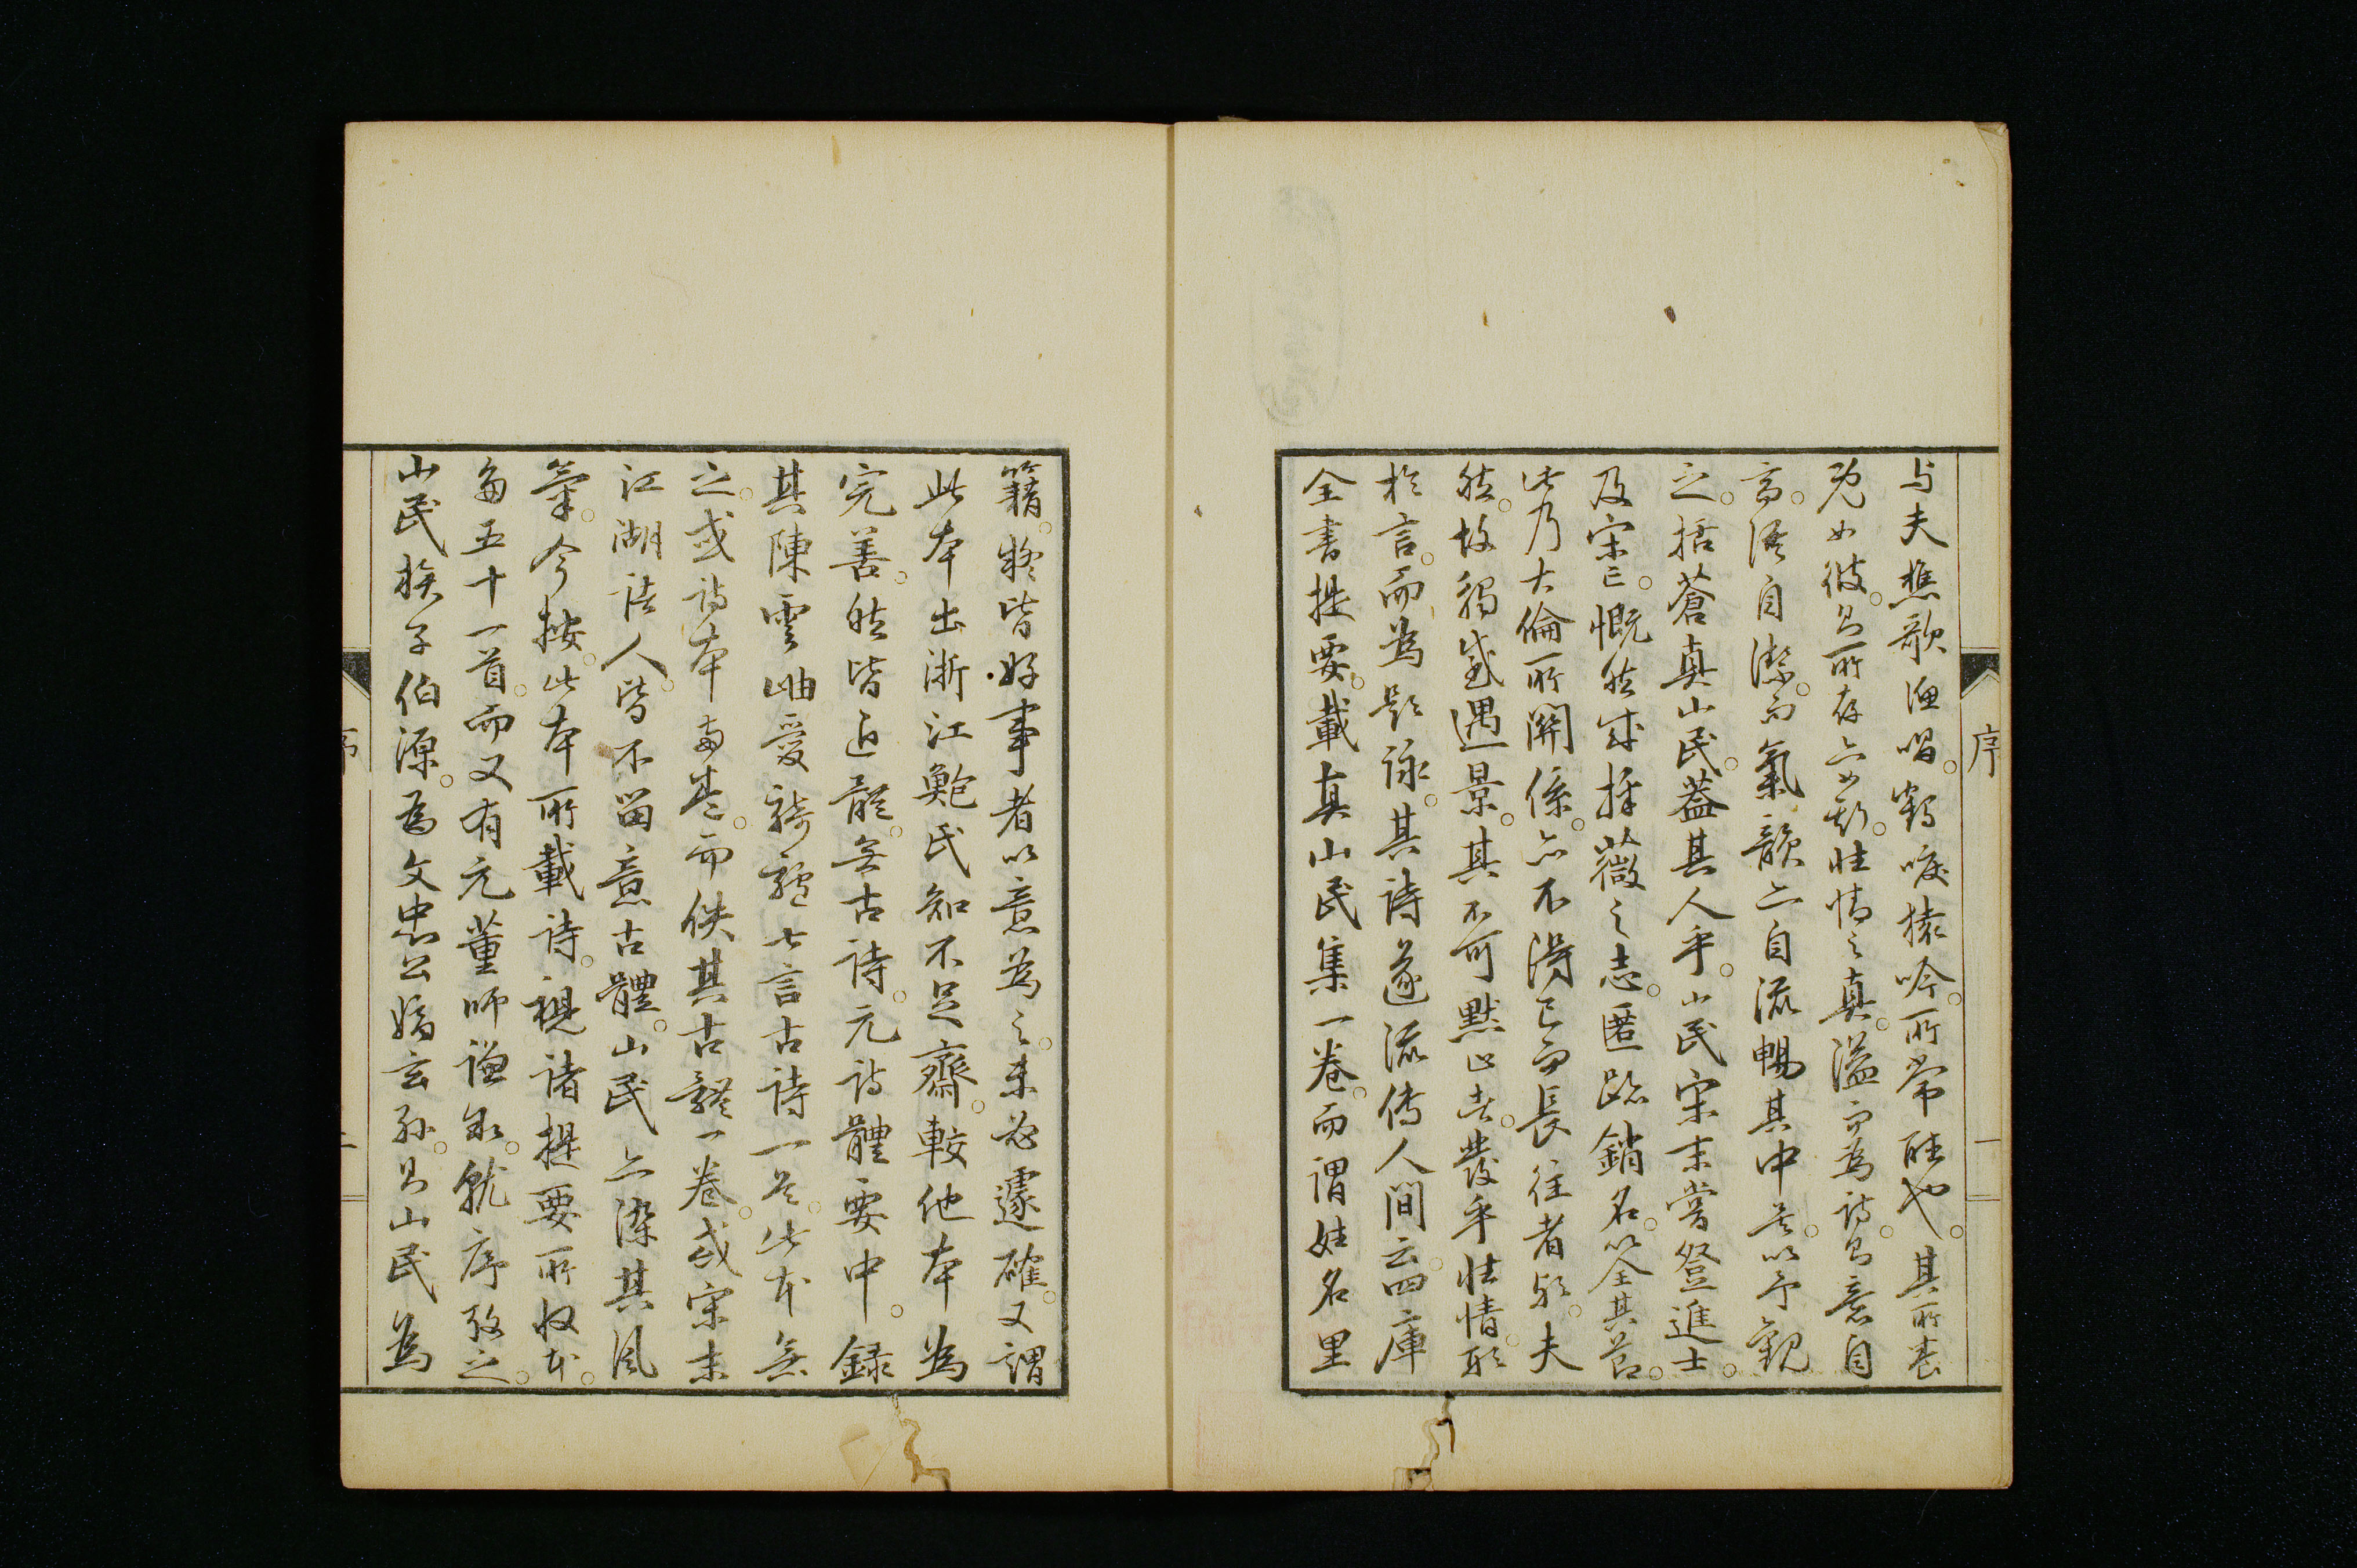 序
与夫樵歌漁唱。鶴唳猿吟。所常聴也。其所養
既如彼。則所存亦如斯。性情之真。溢而為詩。則意自
高。語自潔。而氣韻亦自流暢其中矣。以予觀
之。括蒼真山民。蓋其人乎。山民宋末嘗登進士。
及宋亡。慨然成採薇之志。匿跡銷名。以全其節。
此乃大倫所關係。亦不得已而長往者歟。夫
然。故觸感遇景。其不可默止者。發乎性情。形
於言。而為題詠。其詩遂流傳人間云。四庫
全書提要。載真山民集一卷。而謂姓名里
籍。疑皆好事者以意為之。未必遽確。又謂
此本出浙江鮑氏知不足齋。較他本為
完善。然皆近體。無古詩。元詩體要中。録
其陳雲岫愛騎驢七言古詩一首。此本無
之。或詩本兩集。而佚其古體一卷。或宋末
江湖諸人。皆不留意古體。山民亦染其風
氣。今按。此本所載詩。視諸提要所收本。
多五十一首。而又有元董師謙敘。就序考之。
山民族子伯源。為文忠公嫡玄孫。則山民為